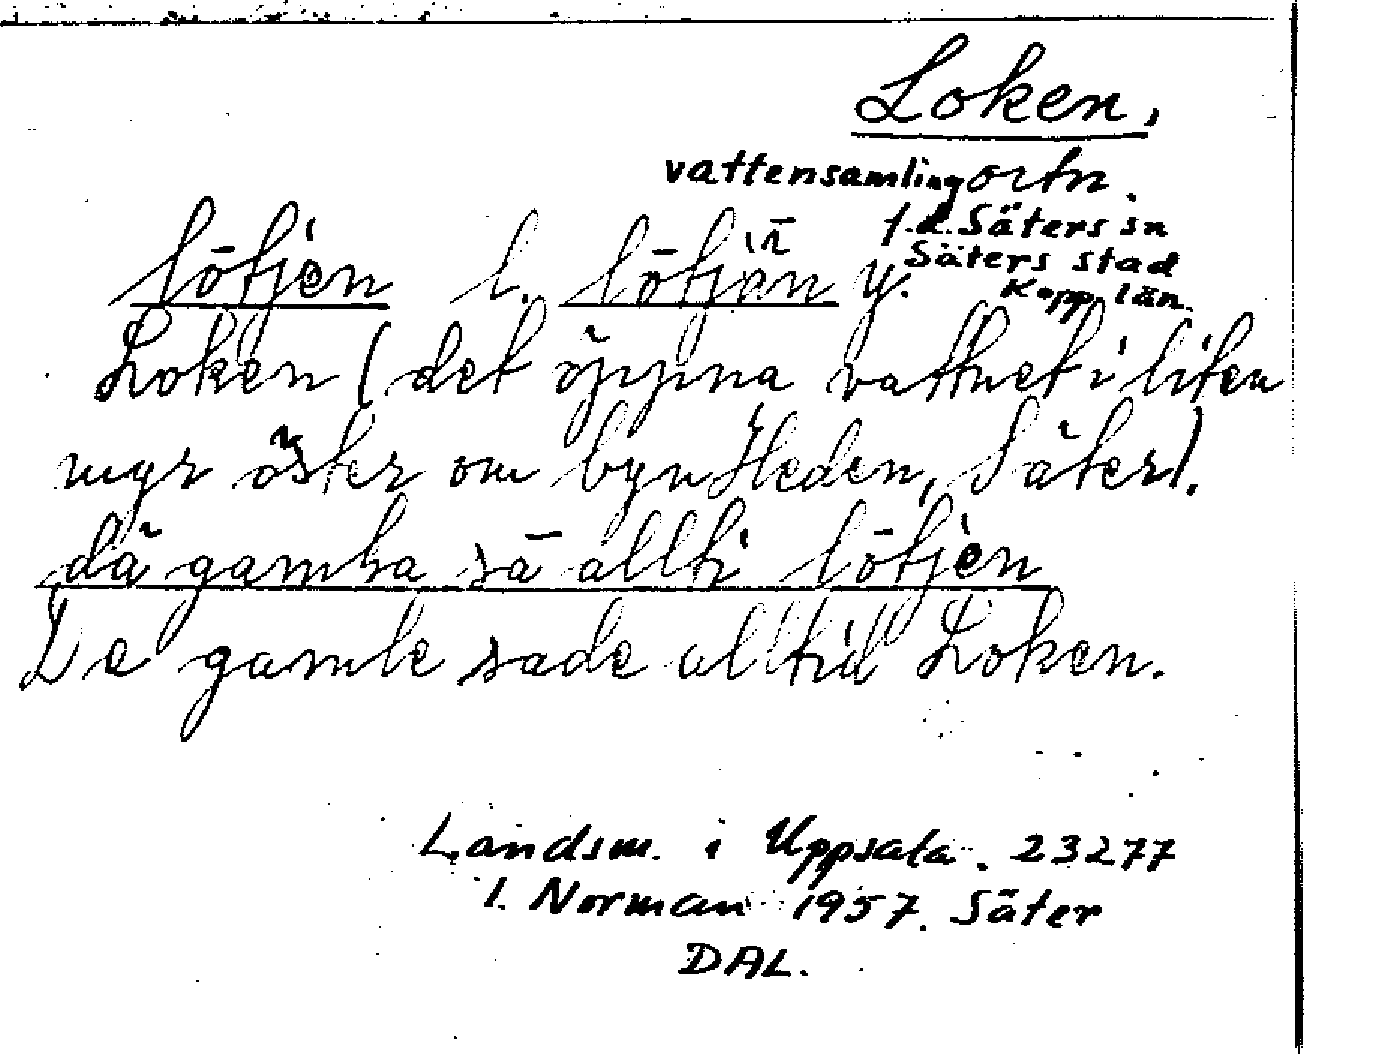 Loken,
vattensamling ortn.
f.d. Säters sn
Säters stad
Kopp. län.
lōtjen l. lōtjän y.
Loken (det öppna vattnet i liten
myr öster om byn Heden, Säter).
dä gamḷa sā allti lōtjen
De gamle sade alltid Loken.
Landsm. i Uppsala. 23277
I. Norman 1957. Säter
DAL.